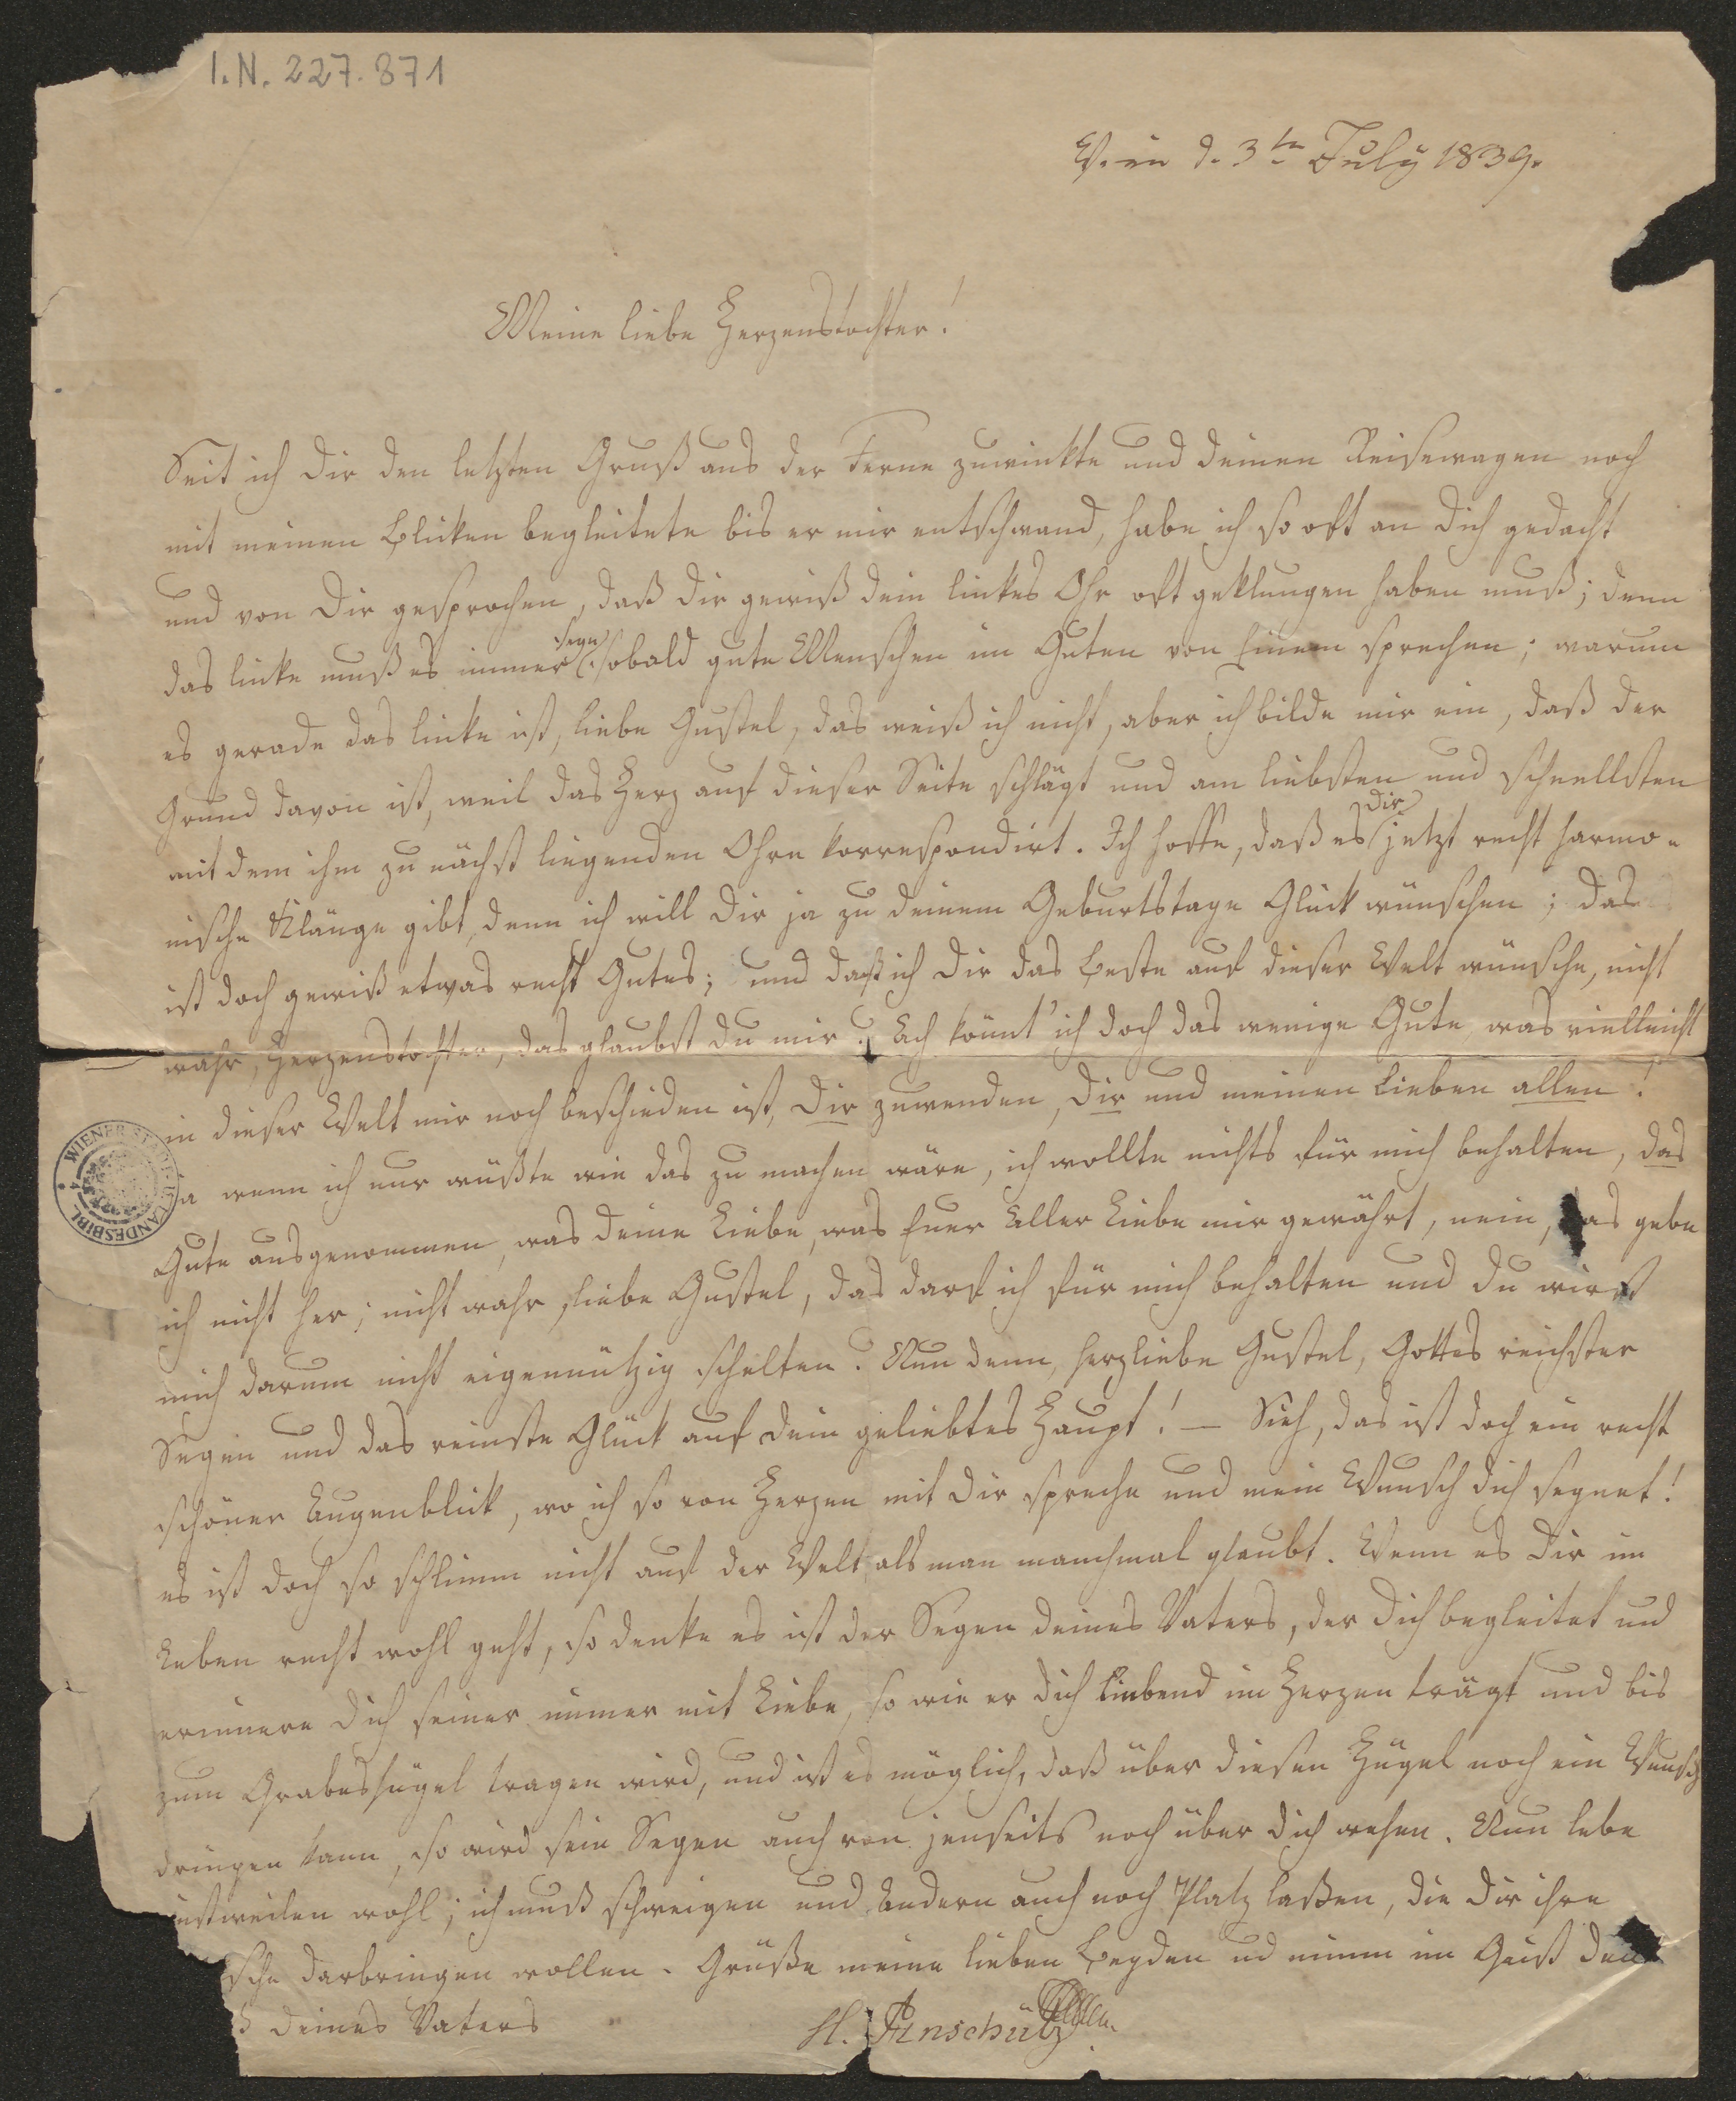 I.N. 227.871
Wien d. 3tn July 1839.
Meine liebe Herzenstochter!
Seit ich Dir den letzten Gruß aus der Ferne zuwinkte und deinen Reisewagen noch
mit meinen Blicken begleitete bis er mir entschwand, habe ich so oft an Dich gedacht
und von Dir gesprochen, daß Dir gewiß dein linkes Ohr oft geklungen haben muß; denn
das linke muß es immer seyn sobald gute Menschen im Guten von Einem sprechen; warum
es gerade das linke ist, liebe Gustel, das weiß ich nicht, aber ich bilde mir ein, daß der
Grund davon ist, weil das Herz auf dieser Seite schlägt und am liebsten und schnellsten
mit dem ihm zu nächst liegenden Ohre korrespondirt. Ich hoffe, daß es Dir jetzt recht harmo-
nische Klänge gibt, denn ich will Dir ja zu deinem Geburtstage Glück wünschen; das
ist doch gewiß etwas recht Gutes; und daß ich Dir das Beste auf dieser Welt wünsche, nicht
wahr, Herzenstochter, das glaubst du mir? Ach könnt' ich doch das wenige Gute, was vielleicht
in dieser Welt mir noch beschieden ist, Dir zuwenden, Dir und meinen Lieben allen!
Ja wenn ich nur wüßte wie das zu machen wäre, ich wollte nichts für mich behalten, das
Gute ausgenommen, was deine Liebe, was Euer Aller Liebe mir gewährt, nein, das gebe
ich nicht her; nicht wahr, liebe Gustel, das darf ich für mich behalten und du wirst
mich darum nicht eigennützig schelten? Nun denn, herzliebe Gustel, Gottes reichster
Segen und das reinste Glück auf dein geliebtes Haupt! — Sieh, das ist doch ein recht
schöner Augenblick, wo ich so von Herzen mit Dir spreche und mein Wunsch dich segnet!
es ist doch so schlimm nicht auf der Welt als man manchmal glaubt. Wenn es Dir im
Leben recht wohl geht, so denke es ist der Segen deines Vaters, der Dich begleitet und
erinnere Dich seiner immer mit Liebe, so wie er Dich liebend im Herzen trägt und bis
zum Grabeshügel tragen wird, und ist es möglich, daß über diesen Hügel noch ein Wunsch
dringen kann, so wird sein Segen auch von jenseits noch über Dich wehen. Nun lebe
instweilen wohl; ich muß schweigen und Andern auch noch Platz laßen, die Dir ihre
sche darbringen wollen. Grüße meine lieben Beyden und nimm im Geist den
ß deines Vaters
H. Anschütz
WIENER STADT- U. LANDESBIBL.